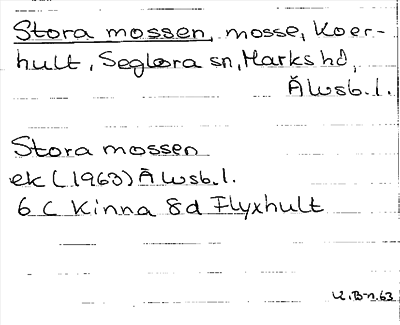 Stora mossen, mosse, Koer-
hult, Seglora sn, Marks hd,
Älvsb. l.
Stora mossen
ek (1963) Älvsb. l.
6 C Kinna 8d Flyxhult